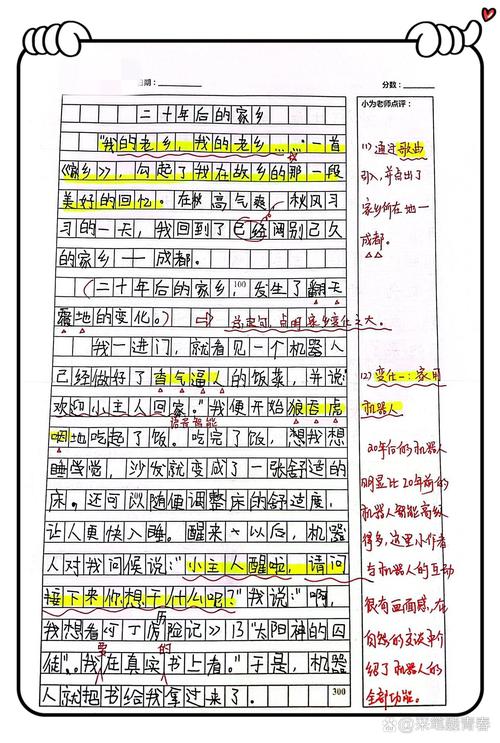 日期：
分数：
二十年后的家乡
小为老师点评：
"我的老乡，我的老乡……"一首
《家乡》，勾起了我在故乡的那一段
美好的回忆。在秋高气爽，秋风习
习的一天，我回到了已经阔别已久
的家乡——成都。
(1)通过歌曲
引入，并点出了
家乡所在地—
成都。
（二十年后的家乡，发生了翻天
100
覆地的变化。）
总起句，点明家乡变化之大。
我一进门，就看见一个机器人
已经做好了香气逼人的饭菜，并说：
"欢迎小主人回家。"我便开始狼吞虎
语音智能
咽地吃起了饭。吃完了饭，想我想
睡觉觉，沙发就变成了一张舒适的
床。还可以随便调整床的舒过度，
让人更快入睡。醒来以后，机器
人对我问候说："小主人醒啦，请问
接下来你想干什么呢？"我说："啊，
我想看《丁丁历险记》13"太阳神的囚
徒"。我要在真实的书上看。"于是，机器
人就把书给我拿过来了。
300
(2)变化一：家用
机器人
20年后的机器人
明显比20年前的
机器人智能高级
得多，这里小作者
与机器人的互动
很有画面感，在
自然的交谈中介
绍了机器人的
全部功能。
采笔墨青春